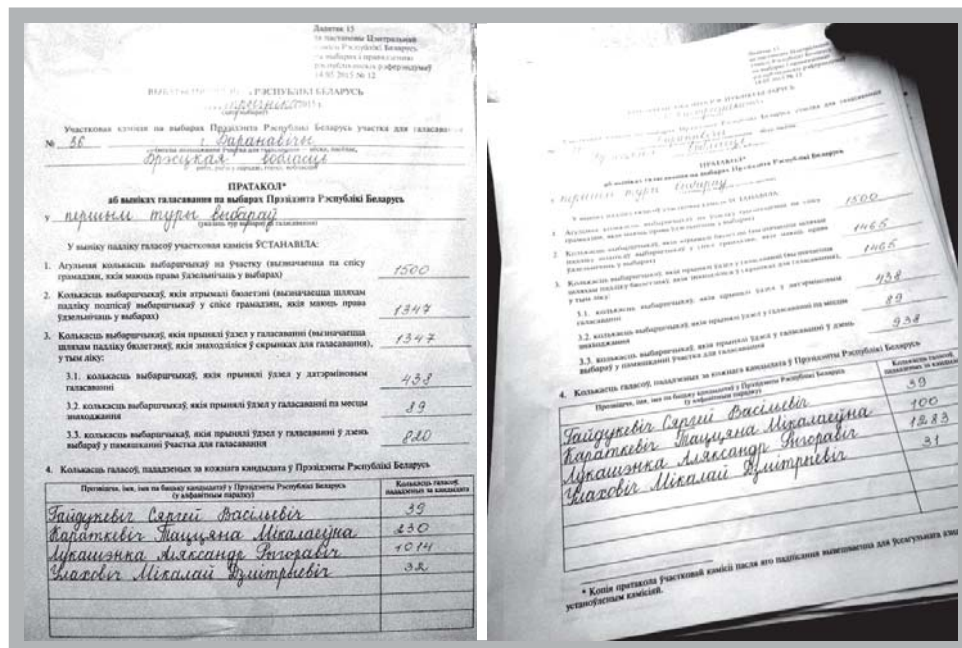 Дадатак 15
да пастановы Цэнтральнай
камісіі Рэспублікі Беларусь
па выбарах і правядзенню
рэспубліканскіх рэферэндумаў
14.05.2015 № 12
РЭСПУБЛІКІ БЕЛАРУСЬ
2015 г.
Участковая камісія па выбарах Прэзідэнта Рэспублікі Беларусь участка для галасавання
№ 36 г. Баранавічы
Брэсцкая вобласць
ПРАТАКОЛ*
аб выніках галасавання па выбарах Прэзідэнта Рэспублікі Беларусь
у першым туры выбараў
(указаць тур выбараў ці галасавання)
У выніку падліку галасоў участковая камісія ЎСТАНАВІЛА:
1. Агульная колькасць выбаршчыкаў на ўчастку (вызначаецца па спісу
грамадзян, якія маюць права ўдзельнічаць у выбарах) 1500
2. Колькасць выбаршчыкаў, якія атрымалі бюлетэні (вызначаецца шляхам
падліку подпісаў выбаршчыкаў у спісе грамадзян, якія маюць права
ўдзельнічаць у выбарах) 1347
3. Колькасць выбаршчыкаў, якія прынялі ўдзел у галасаванні (вызначаецца
шляхам падліку бюлетэняў, якія знаходзіліся ў скрынках для галасавання), 1347
у тым ліку:
3.1. колькасць выбаршчыкаў, якія прынялі ўдзел у датэрміновым
галасаванні 438
3.2. колькасць выбаршчыкаў, якія прынялі ўдзел у галасаванні па месцы
знаходжання 89
3.3. колькасць выбаршчыкаў, якія прынялі ўдзел у галасаванні ў дзень
выбараў у памяшканні ўчастка для галасавання 820
4. Колькасць галасоў, пададзеных за кожнага кандыдата ў Прэзідэнты Рэспублікі Беларусь
Прозвішча, імя, імя па бацьку кандыдатаў у Прэзідэнты Рэспублікі Беларусь
(у алфавітным парадку)
Колькасць галасоў,
пададзеных за кандыдата
Гайдукевіч Сяргей Васільевіч 39
Караткевіч Таццяна Мікалаеўна 230
Лукашэнка Аляксандр Рыгоравіч 1014
Улаховіч Мікалай Дзмітрыевіч 32
ПРАТАКОЛ*
аб выніках галасавання па выбарах Прэзідэнта Рэспублікі Беларусь
у першым туры выбараў
У выніку падліку галасоў участковая камісія ЎСТАНАВІЛА:
1. Агульная колькасць выбаршчыкаў на ўчастку (вызначаецца па спісу
грамадзян, якія маюць права ўдзельнічаць у выбарах) 1500
2. Колькасць выбаршчыкаў, якія атрымалі бюлетэні (вызначаецца шляхам
падліку подпісаў выбаршчыкаў у спісе грамадзян, якія маюць права
ўдзельнічаць у выбарах) 1465
3. Колькасць выбаршчыкаў, якія прынялі ўдзел у галасаванні (вызначаецца
шляхам падліку бюлетэняў, якія знаходзіліся ў скрынках для галасавання), 1465
у тым ліку:
3.1. колькасць выбаршчыкаў, якія прынялі ўдзел у датэрміновым
галасаванні 438
3.2. колькасць выбаршчыкаў, якія прынялі ўдзел у галасаванні па месцы
знаходжання 89
3.3. колькасць выбаршчыкаў, якія прынялі ўдзел у галасаванні ў дзень
выбараў у памяшканні ўчастка для галасавання 938
4. Колькасць галасоў, пададзеных за кожнага кандыдата ў Прэзідэнты Рэспублікі Беларусь
Прозвішча, імя, імя па бацьку кандыдатаў у Прэзідэнты Рэспублікі Беларусь
(у алфавітным парадку)
Колькасць галасоў,
пададзеных за кандыдата
Гайдукевіч Сяргей Васільевіч 39
Караткевіч Таццяна Мікалаеўна 100
Лукашэнка Аляксандр Рыгоравіч 1283
Улаховіч Мікалай Дзмітрыевіч 31
* Копія пратакола ўчастковай камісіі пасля яго падпісання вывешваецца для ўсеагульнага
устаноўленым камісіяй.